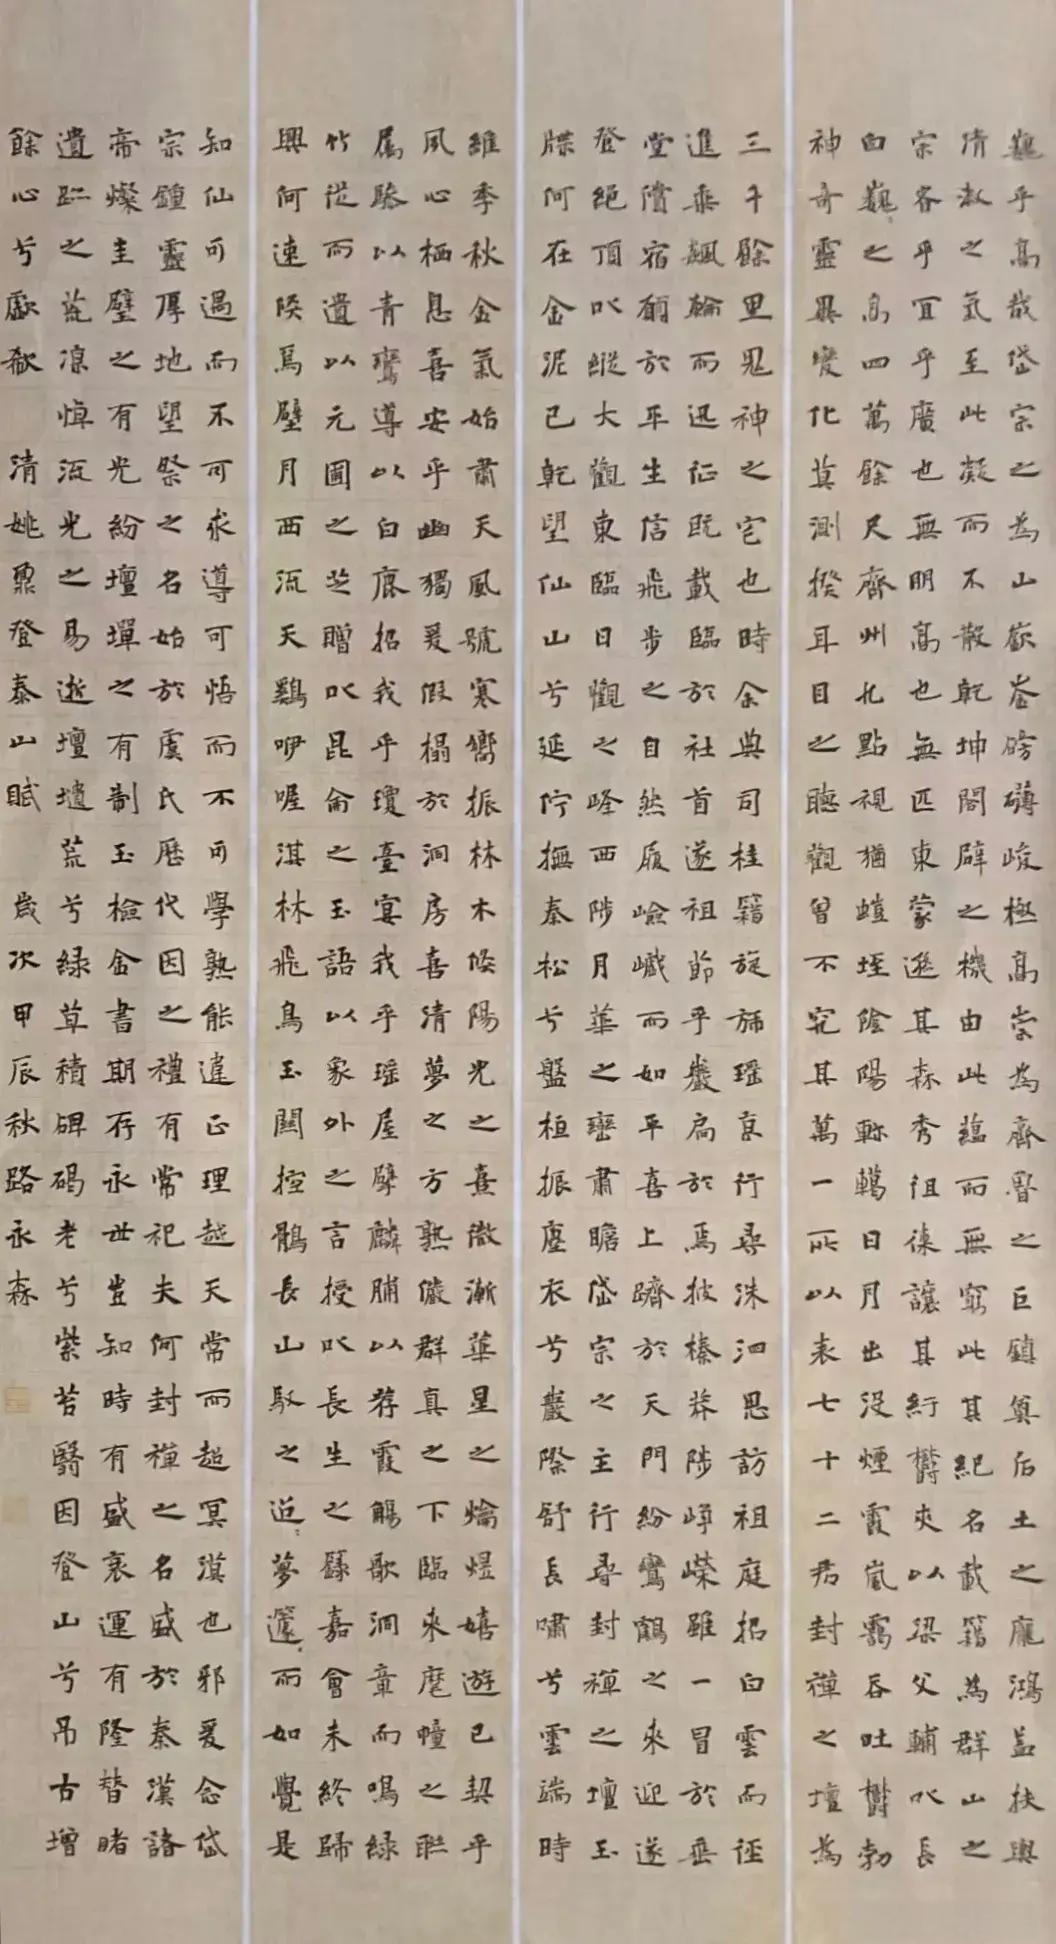 巍乎高哉岱宗之為山嶽峇磅礴峻極高崇為齊魯之巨鎮奠后土之龐鴻盖扶輿
清淑之氣至此凝而不散乾坤闔辟之機由此蘊而無窮此其紀名載籍為群山之
宗容乎宜乎廣也無明高也無匹東蒙遜其森秀徂徠讓其紆欝夾以梁父輔以長
白巍之高四萬餘尺齊州九點視猶螘垤陰陽軫轕日月出沒煙霞嵐靄吞吐欝勃
神奇靈異變化莫測揆耳目之聽觀曾不究其萬一所以表七十二君封禪之壇為
三千餘里鬼神之宅也時余典司桂籍旋旆瑤京行尋洙泗思訪祖庭招白雲而徑
進乘飆輪而迅征既載臨於社首遂祖節乎巖扃於焉披榛莽陟崢嶸雖一冒於垂
堂償宿願於平生信飛步之自然履嶮巇而如平喜上躋於天門紛鸞鶴之來迎遂
登絕頂以縱大觀東臨日觀之峰西陟月華之巒肅瞻岱宗之主行尋封禪之壇玉
牒何在金泥已乾望仙山兮延佇撫秦松兮盤桓振塵衣兮巖際舒長嘯兮雲端時
維季秋金氣始肅天風號寒嚮振林木倏陽光之熹微漸華星之爚煜嬉遊已契乎
夙心栖息喜安乎幽獨爰假榻於洞房喜清夢之方熟儼群真之下臨來麾幢之聯
屬驂以青鸞導以白鹿招我乎瓊臺宴我乎瑤屋擘麟脯以荐霞觴歌洞章而鳴綠
竹從而遺以元圃之芝贈以昆侖之玉語以象外之言授以長生之籙嘉會未終歸
興何速倏焉璧月西流天鷄咿喔淇林飛鳥玉闕控鶻長山馭之迅夢蘧而如覺是
知仙可遇而不可求導可悟而不可學孰能違正理越天常而超冥漠也邪爰念岱
宗鍾靈厚地望祭之名始於虞氏歷代因之禮有常祀夫何封禪之名盛於秦漢諸
帝燦圭璧之有光紛壇墠之有制玉檢金書期存永世豈知時有盛衰運有隆替睹
遺趾之荒凉悼流光之易逝壇壝荒兮綠草積碑碣老兮紫苔翳因登山兮吊古增
餘心兮歔欷 清姚鼐登泰山賦 歲次甲辰秋路永森